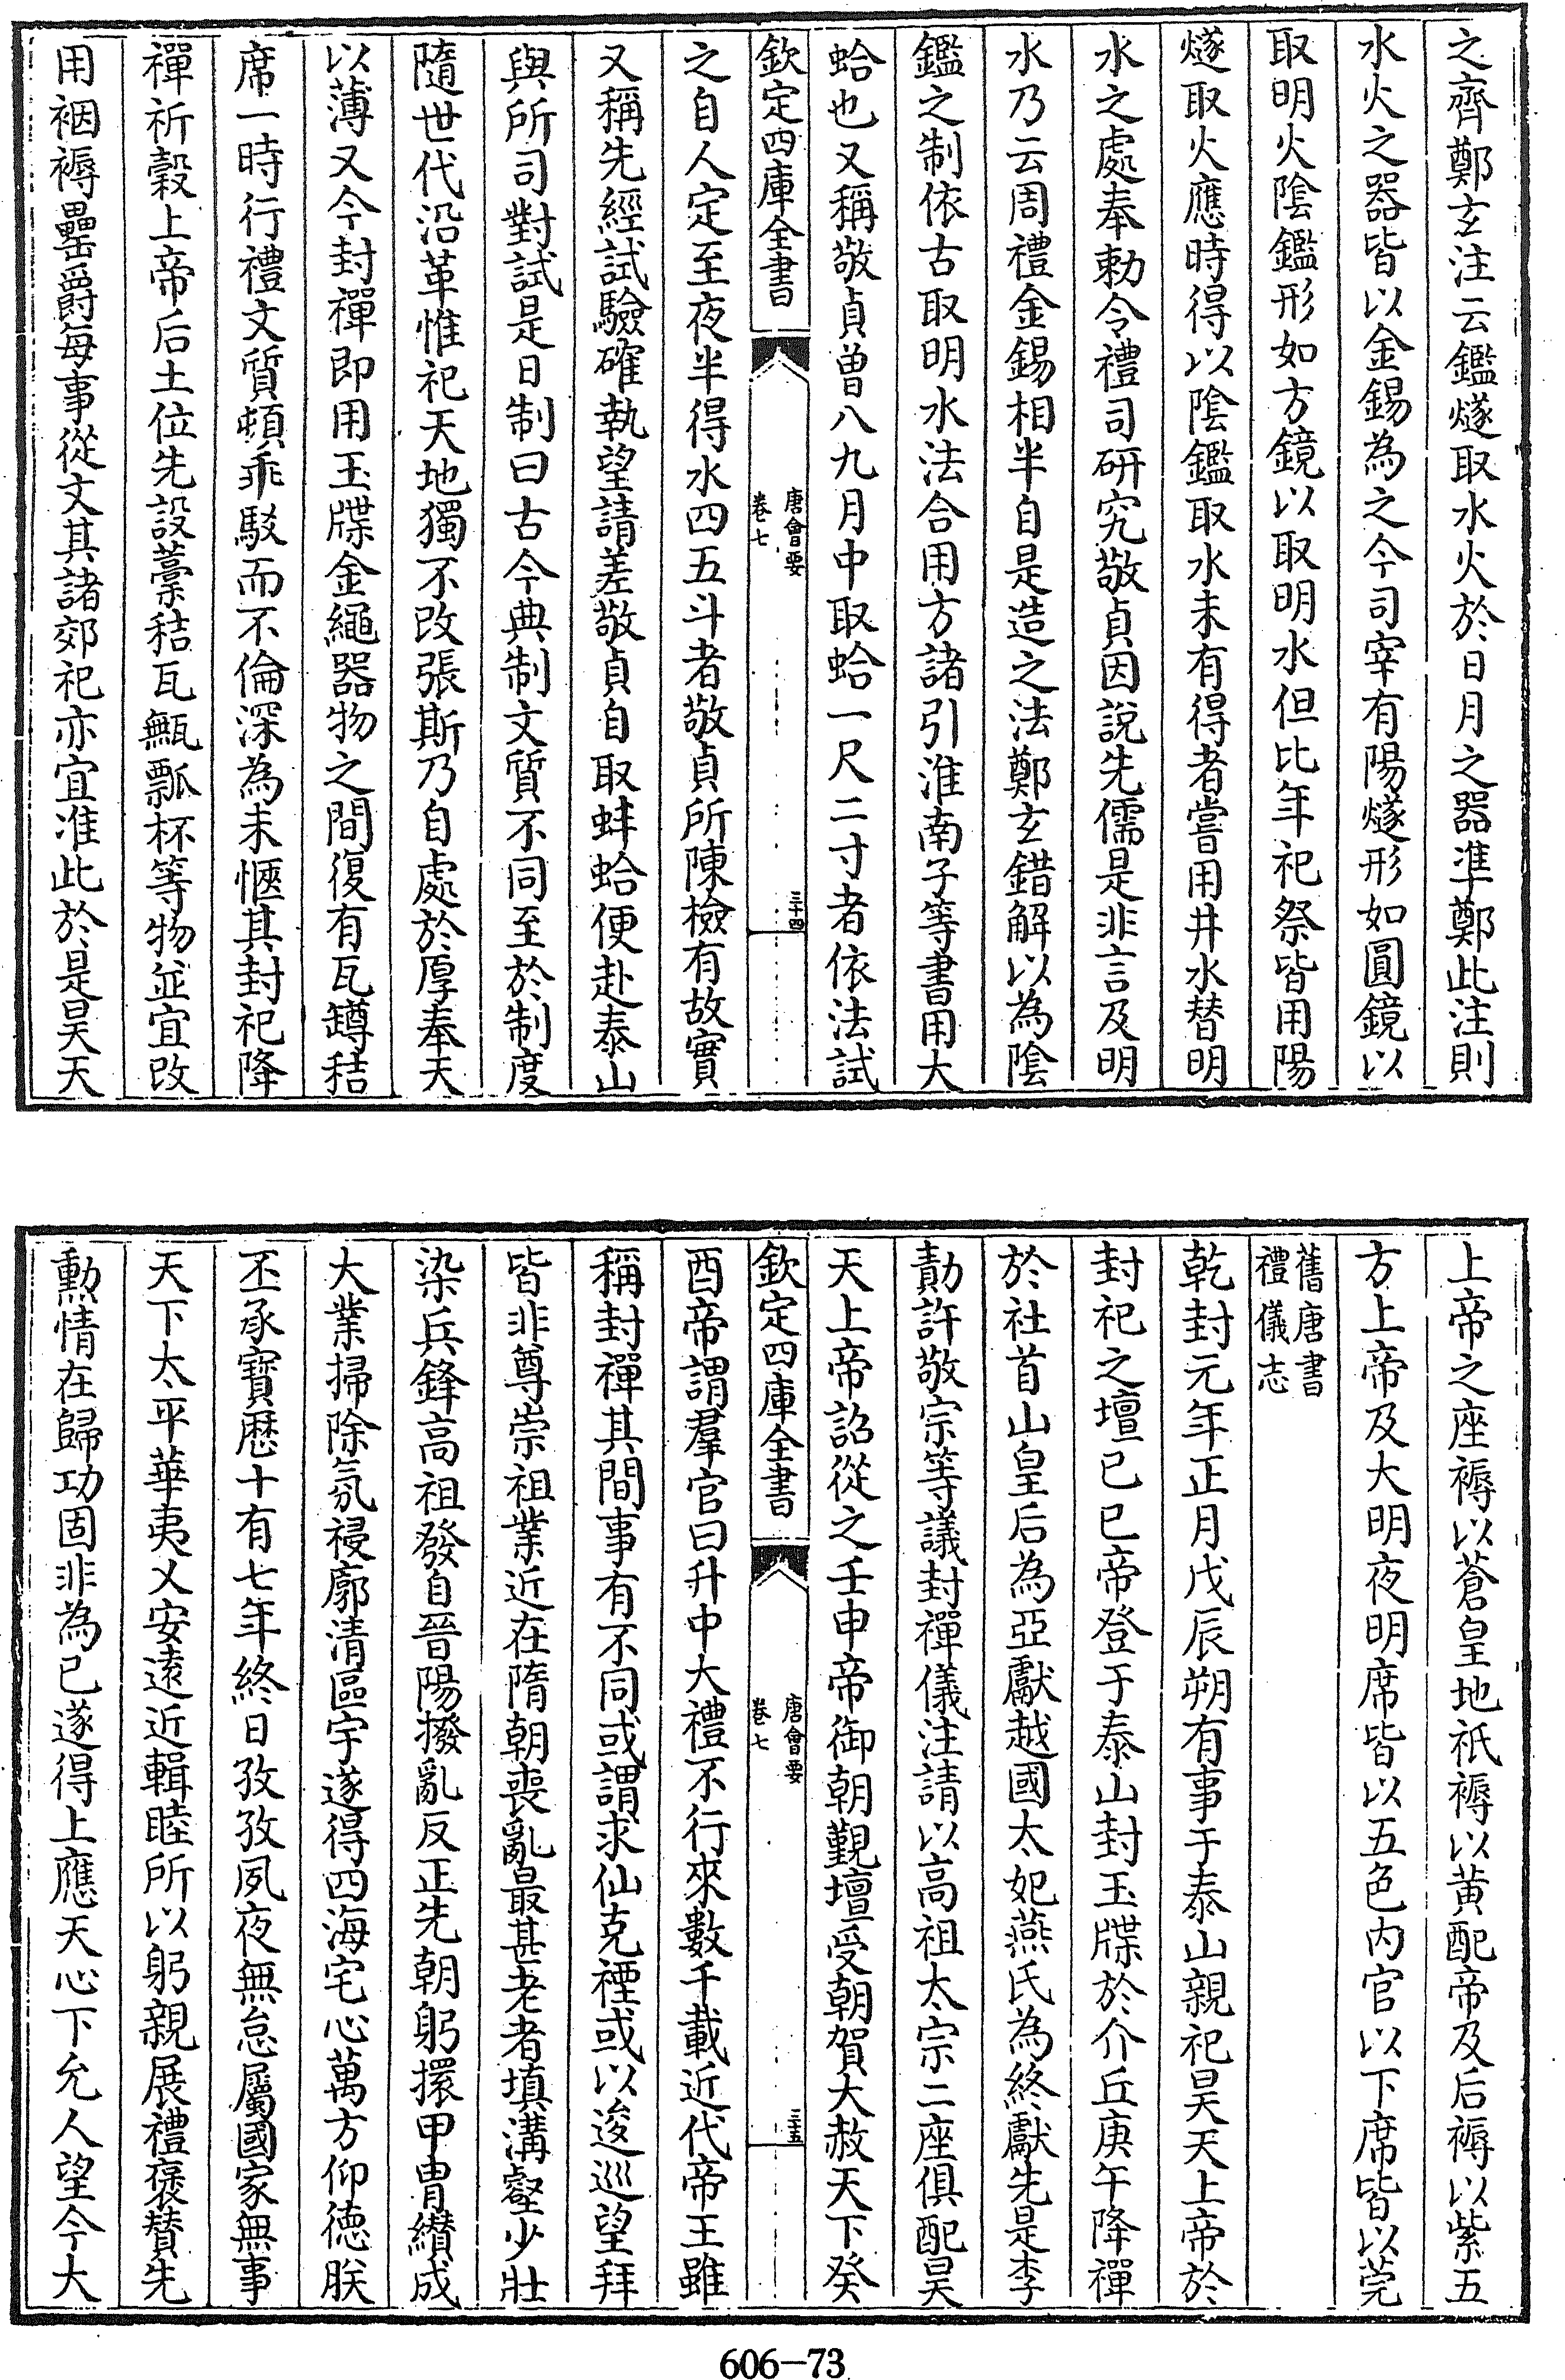 之齊鄭玄注云鑑燧取水火於日月之器準鄭此注則
水火之器皆以金錫為之今司宰有陽燧形如圓鏡以
取明火陰鑑形如方鏡以取明水但比年祀祭皆用陽
燧取火應時得以陰鑑取水未有得者嘗用井水替明
水之處奉勅令禮司研究敬貞因說先儒是非言及明
水乃云周禮金錫相半自是造之法鄭玄錯解以為陰
鑑之制依古取明水法合用方諸引淮南子等書用大
蛤也又稱敬貞曽八九月中取蛤一尺二寸者依法試
欽定四庫全書
唐會要
卷七
三十四
之自人定至夜半得水四五斗者敬貞所陳檢有故實
又稱先經試驗確執望請差敬貞自取蚌蛤便赴泰山
與所司對試是日制曰古今典制文質不同至於制度
隨世代沿革惟祀天地獨不改張斯乃自處於厚奉天
以薄又今封禪即用玉牒金繩器物之間復有瓦罇秸
席一時行禮文質頓乖駁而不倫深為未愜其封祀降
禪祈穀上帝后土位先設藁秸瓦甒瓢杯等物並宜改
用裀褥罍爵每事從文其諸郊祀亦宜准此於是昊天
上帝之座褥以蒼皇地祇褥以黄配帝及后褥以紫五
方上帝及大明夜明席皆以五色内官以下席皆以莞
舊唐書
禮儀志
乾封元年正月戊辰朔有事于泰山親祀昊天上帝於
封祀之壇己巳帝登于泰山封玉牒於介丘庚午降禪
於社首山皇后為亞獻越國太妃燕氏為終獻先是李
勣許敬宗等議封禪儀注請以高祖太宗二座俱配昊
天上帝詔從之壬申帝御朝覲壇受朝賀大赦天下癸
欽定四庫全書
唐會要
卷七
三十五
酉帝謂羣官曰升中大禮不行來數千載近代帝王雖
稱封禪其間事有不同或謂求仙克禋或以逡巡望拜
皆非尊崇祖業近在隋朝喪亂最甚老者填溝壑少壯
染兵鋒高祖發自晉陽撥亂反正先朝躬擐甲胄纘成
大業掃除氛祲廓清區宇遂得四海宅心萬方仰德朕
丕承寶歴十有七年終日孜孜夙夜無怠屬國家無事
天下太平華夷乂安遠近輯睦所以躬親展禮褒贊先
勲情在歸功固非為已遂得上應天心下允人望今大
606-73